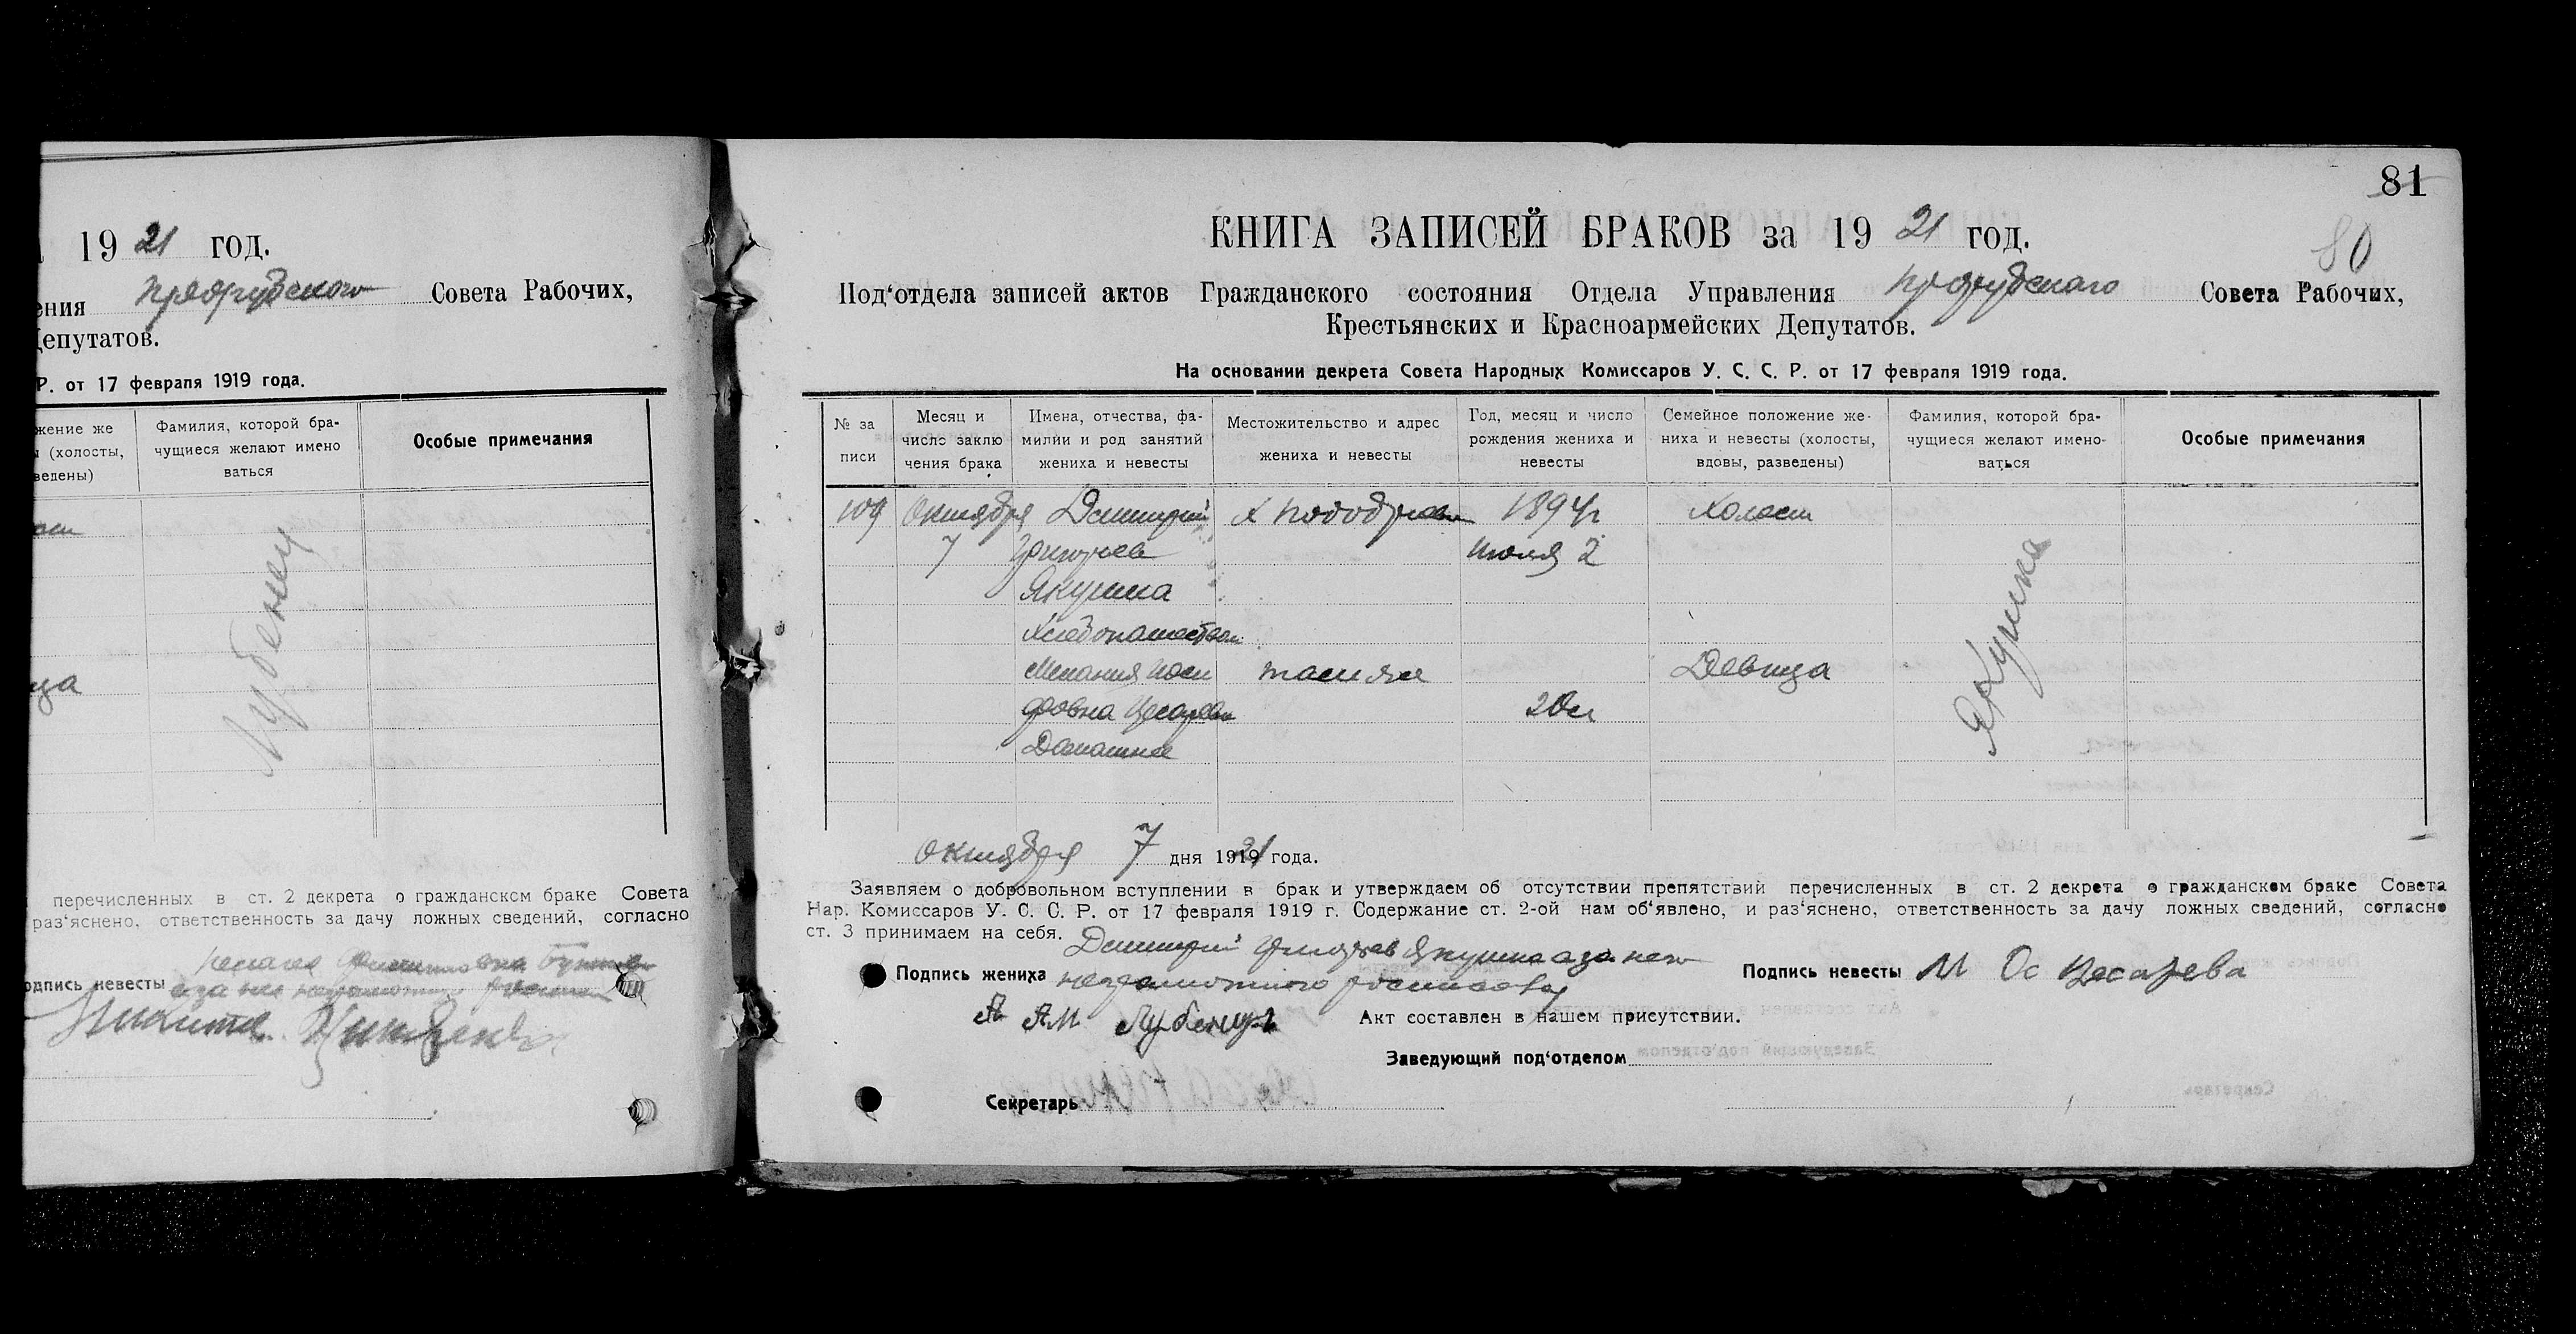 19 21 год.
ения Совета Рабочих,
Депутатов.
Р. от 17 февраля 1919 года.
жение же
(холосты,
ведены)
Фамилия, которой бра-
чущиеся желают имено
ваться
Особые примечания
ца
Лубенец
перечисленных в ст. 2 декрета о гражданском браке Совета
раз'яснено, ответственность за дачу ложных сведений, согласно
одпись невесты
81
80
КНИГА ЗАПИСЕЙ БРАКОВ за 19 21 год.
Под'отдела записей актов Гражданского состояния Отдела Управления Совета Рабочих,
Крестьянских и Красноармейских Депутатов.
На основании декрета Совета Народных Комиссаров У. С. С. Р. от 17 февраля 1919 года.
№ за
писи
Месяц и
число заклю
чения брака
Имена, отчества, фа-
милии и род занятий
жениха и невесты
Местожительство и адрес
жениха и невесты
Год, месяц и число
рождения жениха и
невесты
Семейное положение же-
ниха и невесты (холосты,
вдовы, разведены)
Фамилия, которой бра-
чущиеся желают имено-
ваться
Особые примечания
109 Октября Димитрий х 1894г Холост
7 Григорьев Июля 2
Якушка
Хлебопашество
Мелания Иоси Девица
фовна 20л
Домашнее
Якушка
Октября 7 дня 1921 года.
Заявляем о добровольном вступлении в брак и утверждаем об отсутствии препятствий перечисленных в ст. 2 декрета о гражданском браке Совета
Нар. Комиссаров У. С. С. Р. от 17 февраля 1919 г. Содержание ст. 2-ой нам об'явлено, и раз'яснено, ответственность за дачу ложных сведений, согласно
ст. 3 принимаем на себя.
Димитрий Григорьев Якушка а за него
Подпись жениха неграмотного
Подпись невесты М Ос Цесарева
АМ Лубенец
Акт составлен в нашем присутствии.
Заведующий под'отделом
Секретарь